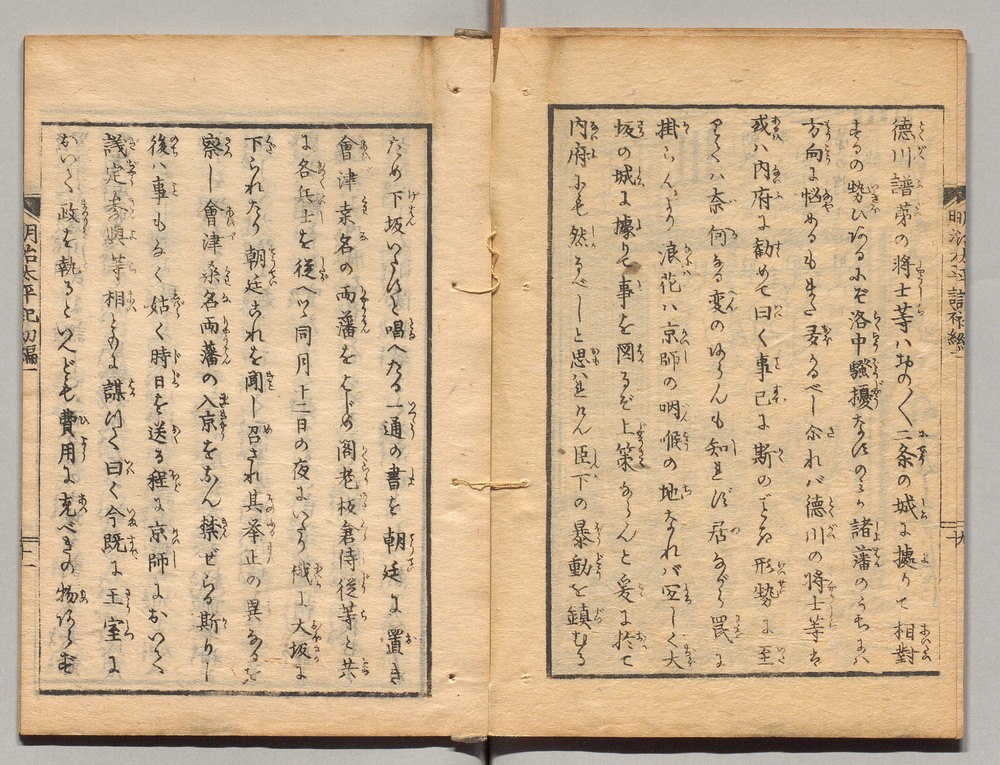 徳川譜第の将士等ハおの〱二条の城に據りて相對
するの勢ひあるにぞ洛中騒擾なのミか諸藩のうちにハ
方向に悩めるもまた多かるべし尓れバ徳川の将士等ハ
或ハ内府に勧めて曰く事已に斯のごとき形勢に至
りてハ奈何なる変のあらんも知れず居ながら罠に
掛らんより浪花ハ京師の咽喉の地なれバ宜しく大
坂の城に據りて事を図るぞ上策ならんと爰に於て
内府にも然るべしと思はれけん臣下の暴動を鎮むる
ため下坂いたすと唱へたる一通の書を朝廷に置き
會津桒名の両藩をはじめ閣老板倉侍従等と共
に各兵士を従へつゝ同月十二日の夜にいたり俄に大坂に
下られたり朝廷これを聞し召され其挙止の異なるを
察し會津桒名両藩の入京をなん禁ぜらる斯りし
後ハ事もなく姑く時日を送る程に京師においてハ
議定参與等相ともに謀つて曰く今既に王室に
おいて政を執るといへども費用に充べきの物あらず
明治太平記初編一
十一